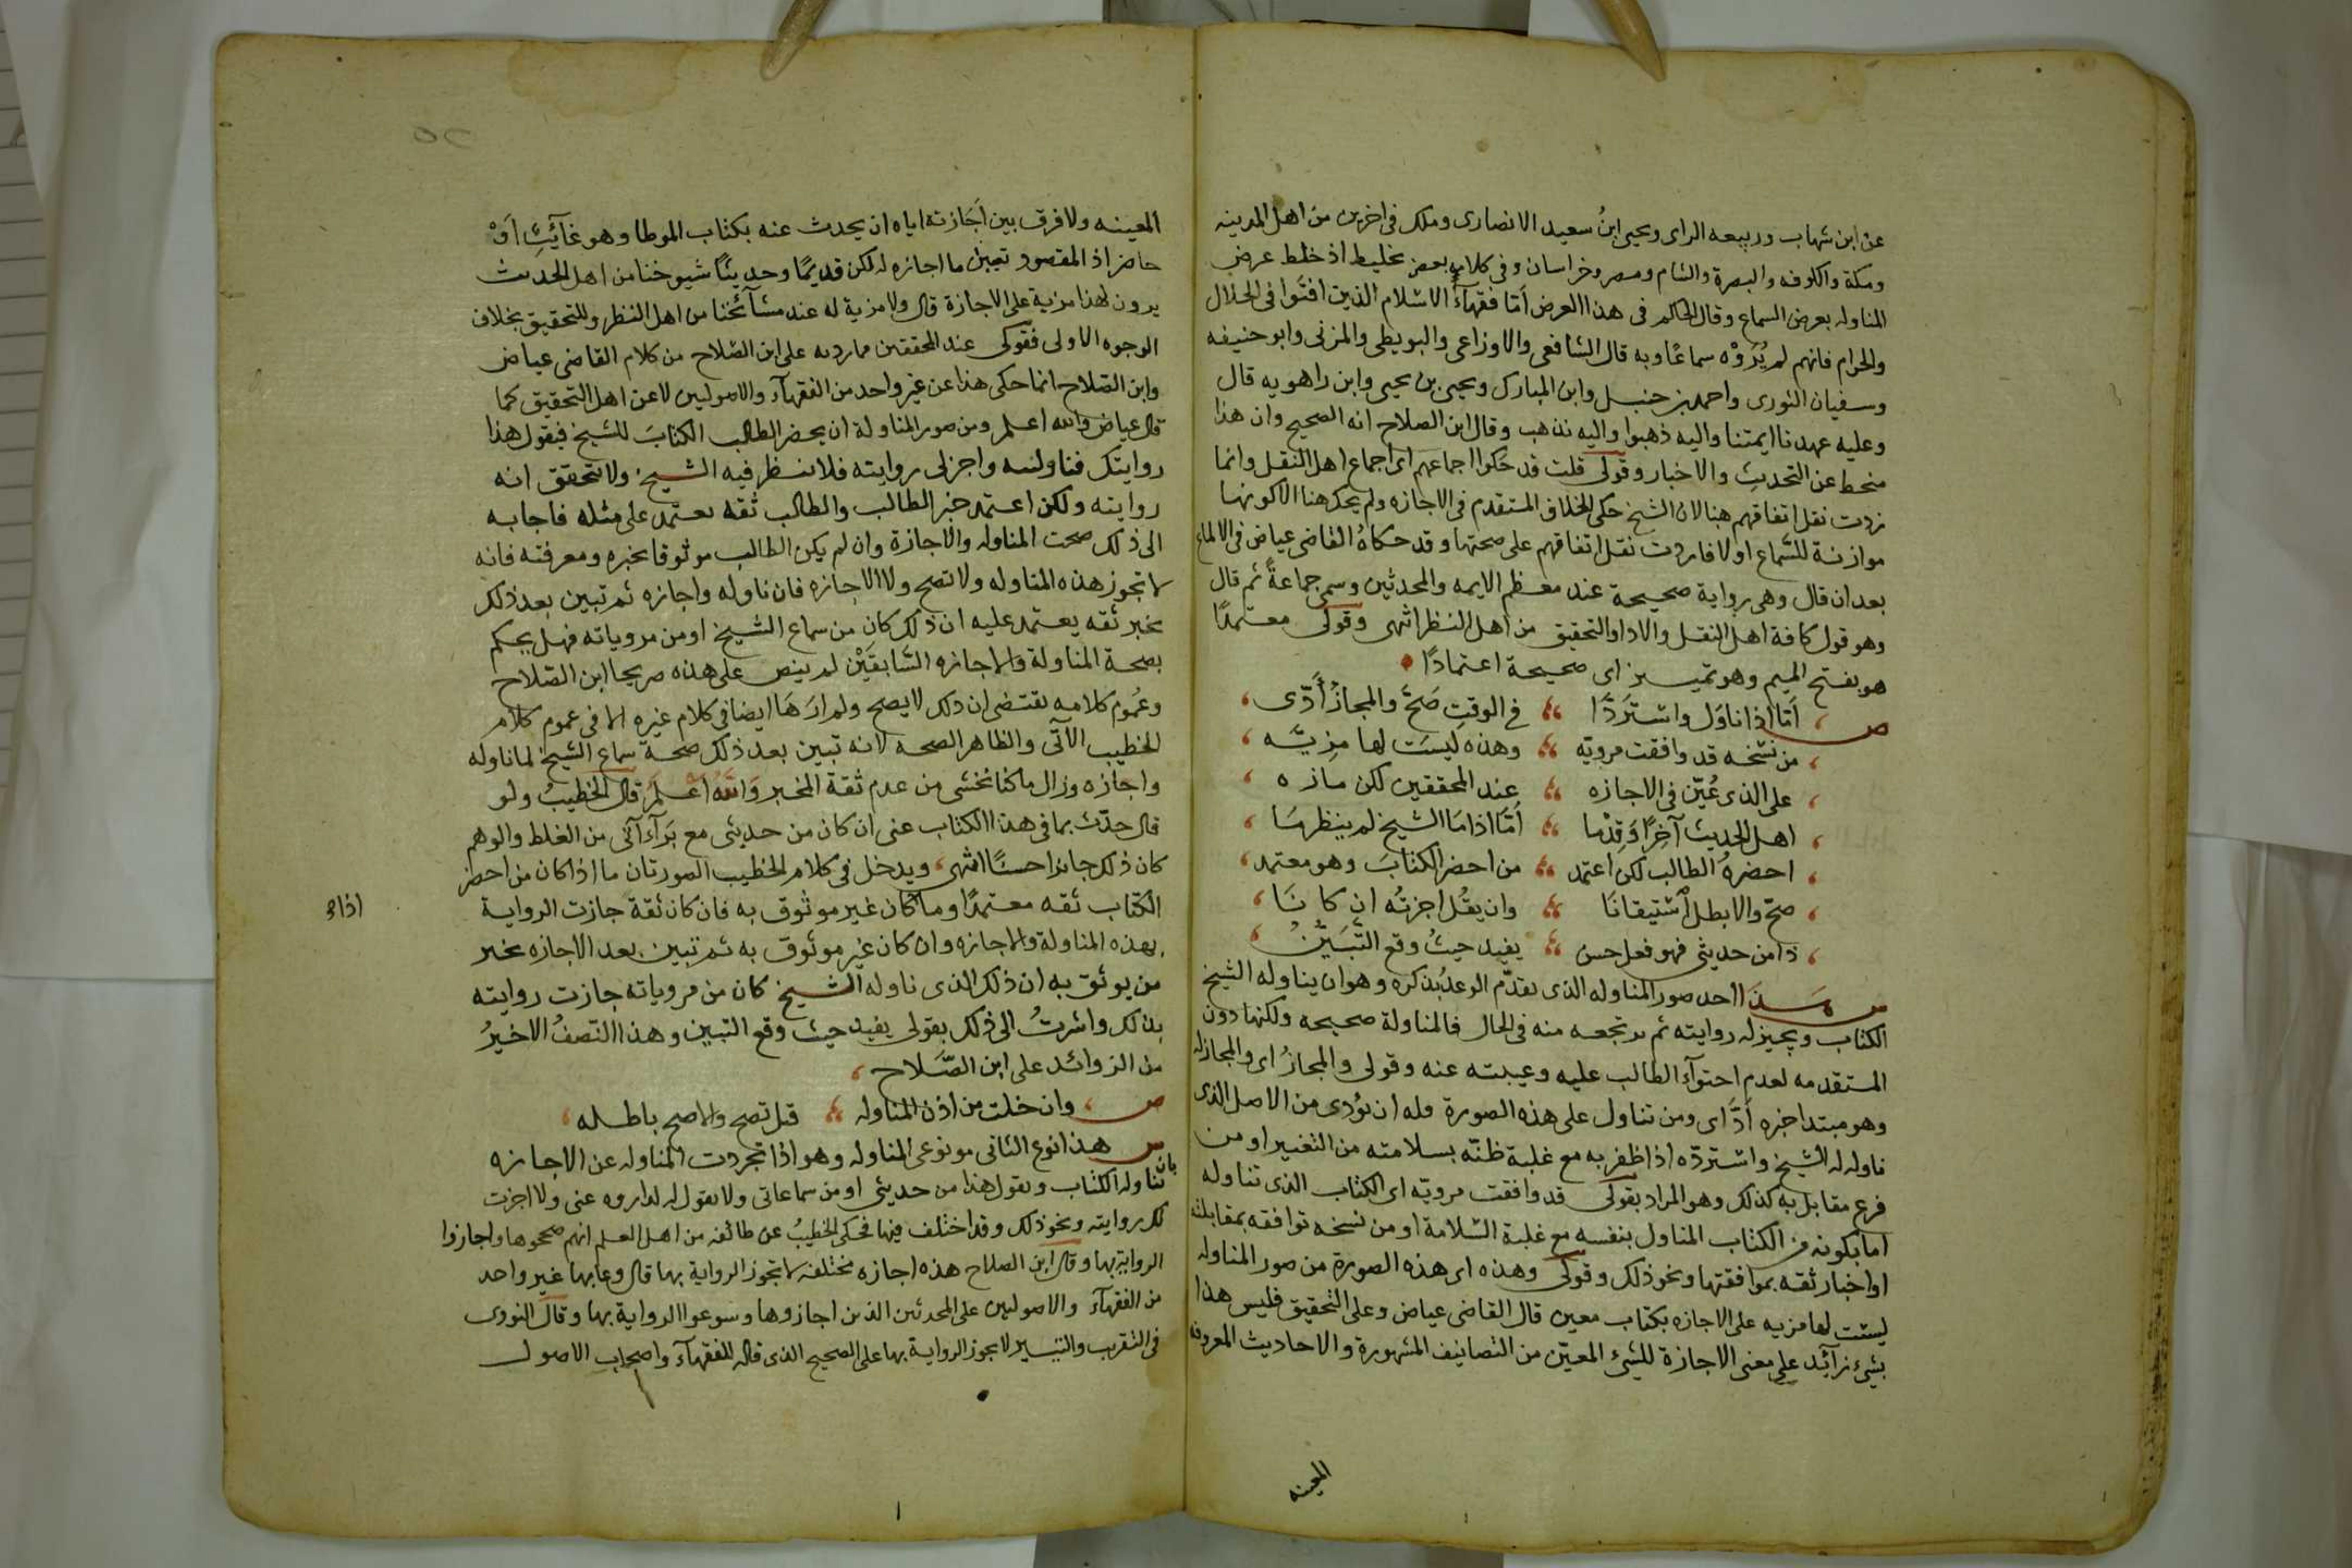 عن ابن شهاب وربيعه الراى ويحيى ابنُ سعيد الانصارى وملك فى اخرين من اهل المدينه
ومكة والكوفه والبصرة والشام ومصر وخراسان وفى كلامه بعض تخليط اذ خلط عرض
المناوله بعرض السماع وقال الحاكم فى هذا العرض أمّا فقهآءُ الاسلام الذين افتَوا فى الحلال
والحرام فانهم لم يُرَوْه سماعًا وبه قال الشافعى والاوزاعى والبويطى والمزنى وابو حنيفه
وسفيان الثورى واحمد بن حنبل وابن المبارك ويحيى بن يحيى وابن راهويه قال
وعليه عهدنا ايمتنا واليه ذهبوا واليه نذهب وقال ابن الصلاح انه الصحيح وان هذا
منحط عن التحديث والاخبار وقولى قلت قد حكوا اجماعهم اى اجماع اهل النقل وانما
زدت نقل اتفاقهم هنا لان الشيخ حكى الخلاف المتقدم فى الاجازه ولم يحك هنا الا كونها
موازنة للسّماع او لا فاردت نقل اتفاقهم على صحتها وقد حكاهُ القاضى عياض فى الالماع
بعد ان قال وهى رواية صحيحة عند معظم الايمه والمحدثين وسمى جماعةً ثم قال
وهو قول كافة اهل النقل والادا والتحقيق من اهل النظر انتهى وقولى معتمدًا
هو بفتح الميم وهو تمييز اى صحيحة اعتمادًا
ص أمّا اذا ناوَل واسْتَرَدَّا فى الوقتِ صَحَّ والمجازُ أَدَّى
من نسْخه قد وافقت مرويّه وهذه ليسَت لها مِزيّه
على الذى عُيّن فى الاجازه عند المحققين لكن مازه
اهل الحديث آخرًا وَقِدْمَا أمَّا اذا مَا الشيخ لم ينظر مَا
احضرهُ الطالب لكن اعتمد من احضر الكتابَ وهو معتمد
صحّ والا بطل اسْتيقانَا وان يقُل اجزتُه ان كانَا
ذا من حديثى فهو فعل حسن يفيد حيثُ وقع التَّبَيُّنُ
س هَذا احد صور المناوله الذى تقدّم الوعدُ بذكره وهو ان يناوله الشيخ
الكتاب ويجيز له روايته ثم يرتجعه منه فى الحال فالمناولة صحيحه ولكنها دون
المتقدمه لعدم احتوآء الطالب عليه وغيبته عنه وقولى والمجازُ اى والمجاز له
وهو مبتدا خبره أَدَّا اى ومن تناول على هذه الصورة فله ان يؤدى من الاصل الذى
ناوله له الشيخ واستردّه اذا ظفر به مع غلبة ظنّه بسلامته من التغيير او من
فرع مقابل به كذلك وهو المراد بقولى قد وافقت مرويّه اى الكتاب الذى تناوله
اما بكونه من الكتاب المناول بنفسه مع غلبة السّلامة او من نسخه توافقه بمقابلته
او اخبار ثقه بموافقتها ونحو ذلك وقولى وهذه اى هذه الصورة من صور المناوله
ليسْت لها مزيه على الاجازه بكتاب معين قال القاضى عياض وعلى التحقيق فليس هذا
بشىء زآئد على معنى الاجازة للشىء المعيّن من التصانيف المشهورة والاحاديث المعروفه
المعينه
المعينه ولا فرق بين أجَازته اياه ان يحدث عنه بكتاب الموطا وهو غآئبٌ أوْ
حاضر اذ المقصود تعيين ما اجازه له لكن قديمًا وحديثًا شيوخنا من اهل الحديث
يرون لهذا مزية على الاجازة قال ولا مزية له عند مشآئخنا من اهل النظر والتحقيق بخلاف
الوجوه الاولى فقولى عند المحققين مما زدته على ابن الصّلاح من كلام القاضى عياض
وابن الصّلاح انما حكى هذا عن غير واحد من الفقهآء والاصوليين لا عن اهل التحقيق كما
قال عياض والله اعلم ومن صور المناولة ان يحضر الطالب الكتابَ للشيخ فيقول هذا
روايتك فناولنيه واجز لى روايته فلا ينظر فيه الشيخ ولا تحقق انه
روايته ولكن اعتمد خبر الطالب والطالب ثقه يعتمد على مثله فاجابه
الى ذلك صحت المناوله والاجازة وان لم يكن الطالب موثوقا بخبره ومعرفته فانه
لا تجوز هذه المناوله ولا تصح ولا الاجازه فان ناوله واجازه ثم تبين بعد ذلك
بخبر ثقه يعتمد عليه ان ذلك كان من سماع الشيخ او من مروياته فهل يحكم
بصحة المناولة والاجازه السّابقَيْن لم ينص على هذه صريحا ابن الصّلاح
وعُموم كلامه يقتضى ان ذلك لا يصح ولم ارَهَا ايضا فى كلام غيره الا فى عموم كلام
الخطيب الآتى والظاهر الصحه لانه تبين بعد ذلك صحة سماع الشيخ لما ناوله
واجازه وزال ما كنا نخشى من عدم ثقة المخبر وَاللّهُ أعْلَمُ قال الخطيبُ ولو
قال حدّث بما فى هذا الكتاب عنى ان كان من حديثى مع بَرَآءَتى من الغلط والوهم
كان ذلك جائزا حسنًا انتهى ويدخل فى كلام الخطيب الصورتان ما اذا كان من احضر
الكتاب ثقه معتمدًا وما كان غير موثوق به فان كان ثقة جازت الرواية
اذا
بهذه المناولة والاجازه وان كان غير موثوق به ثم تبين بعد الاجازه بخبر
من يوثق به ان ذلك الذى ناوله الشيخ كان من مروياته جازت روايته
بذلك واشرتُ الى ذلك بقولى يفيد حيث وقع التبين وهذا النّصفُ الاخيرُ
من الزوائد على ابن الصَّلاح
ص وان خلت من اذن المناوله قيل تصح والاصح باطله
س هذا انوع الثانى من نوعى المناوله وهو اذا تجردت المناوله عن الاجازه
بان تناوله الكتاب ويقول هذا من حديثى او من سماعاتى ولا يقول له اروه عنى ولا اجزت
لك روايته ونحو ذلك وقد اختلف فيها فحكى الخطيبُ عن طائفه من اهل العلم انهم صححوها واجازوا
الرواية بها وقال ابن الصلاح هذه اجازه مختلفه لا تجوز الرواية بها قال وعابها غير واحد
من الفقهآء والاصوليين على المحدثين الذين اجازوها وسوغوا الرواية بها وقال النووى
فى التقريب والتيسير لا يجوز الرواية بها على الصحيح الذى قاله الفقهآء واصحاب الاصول